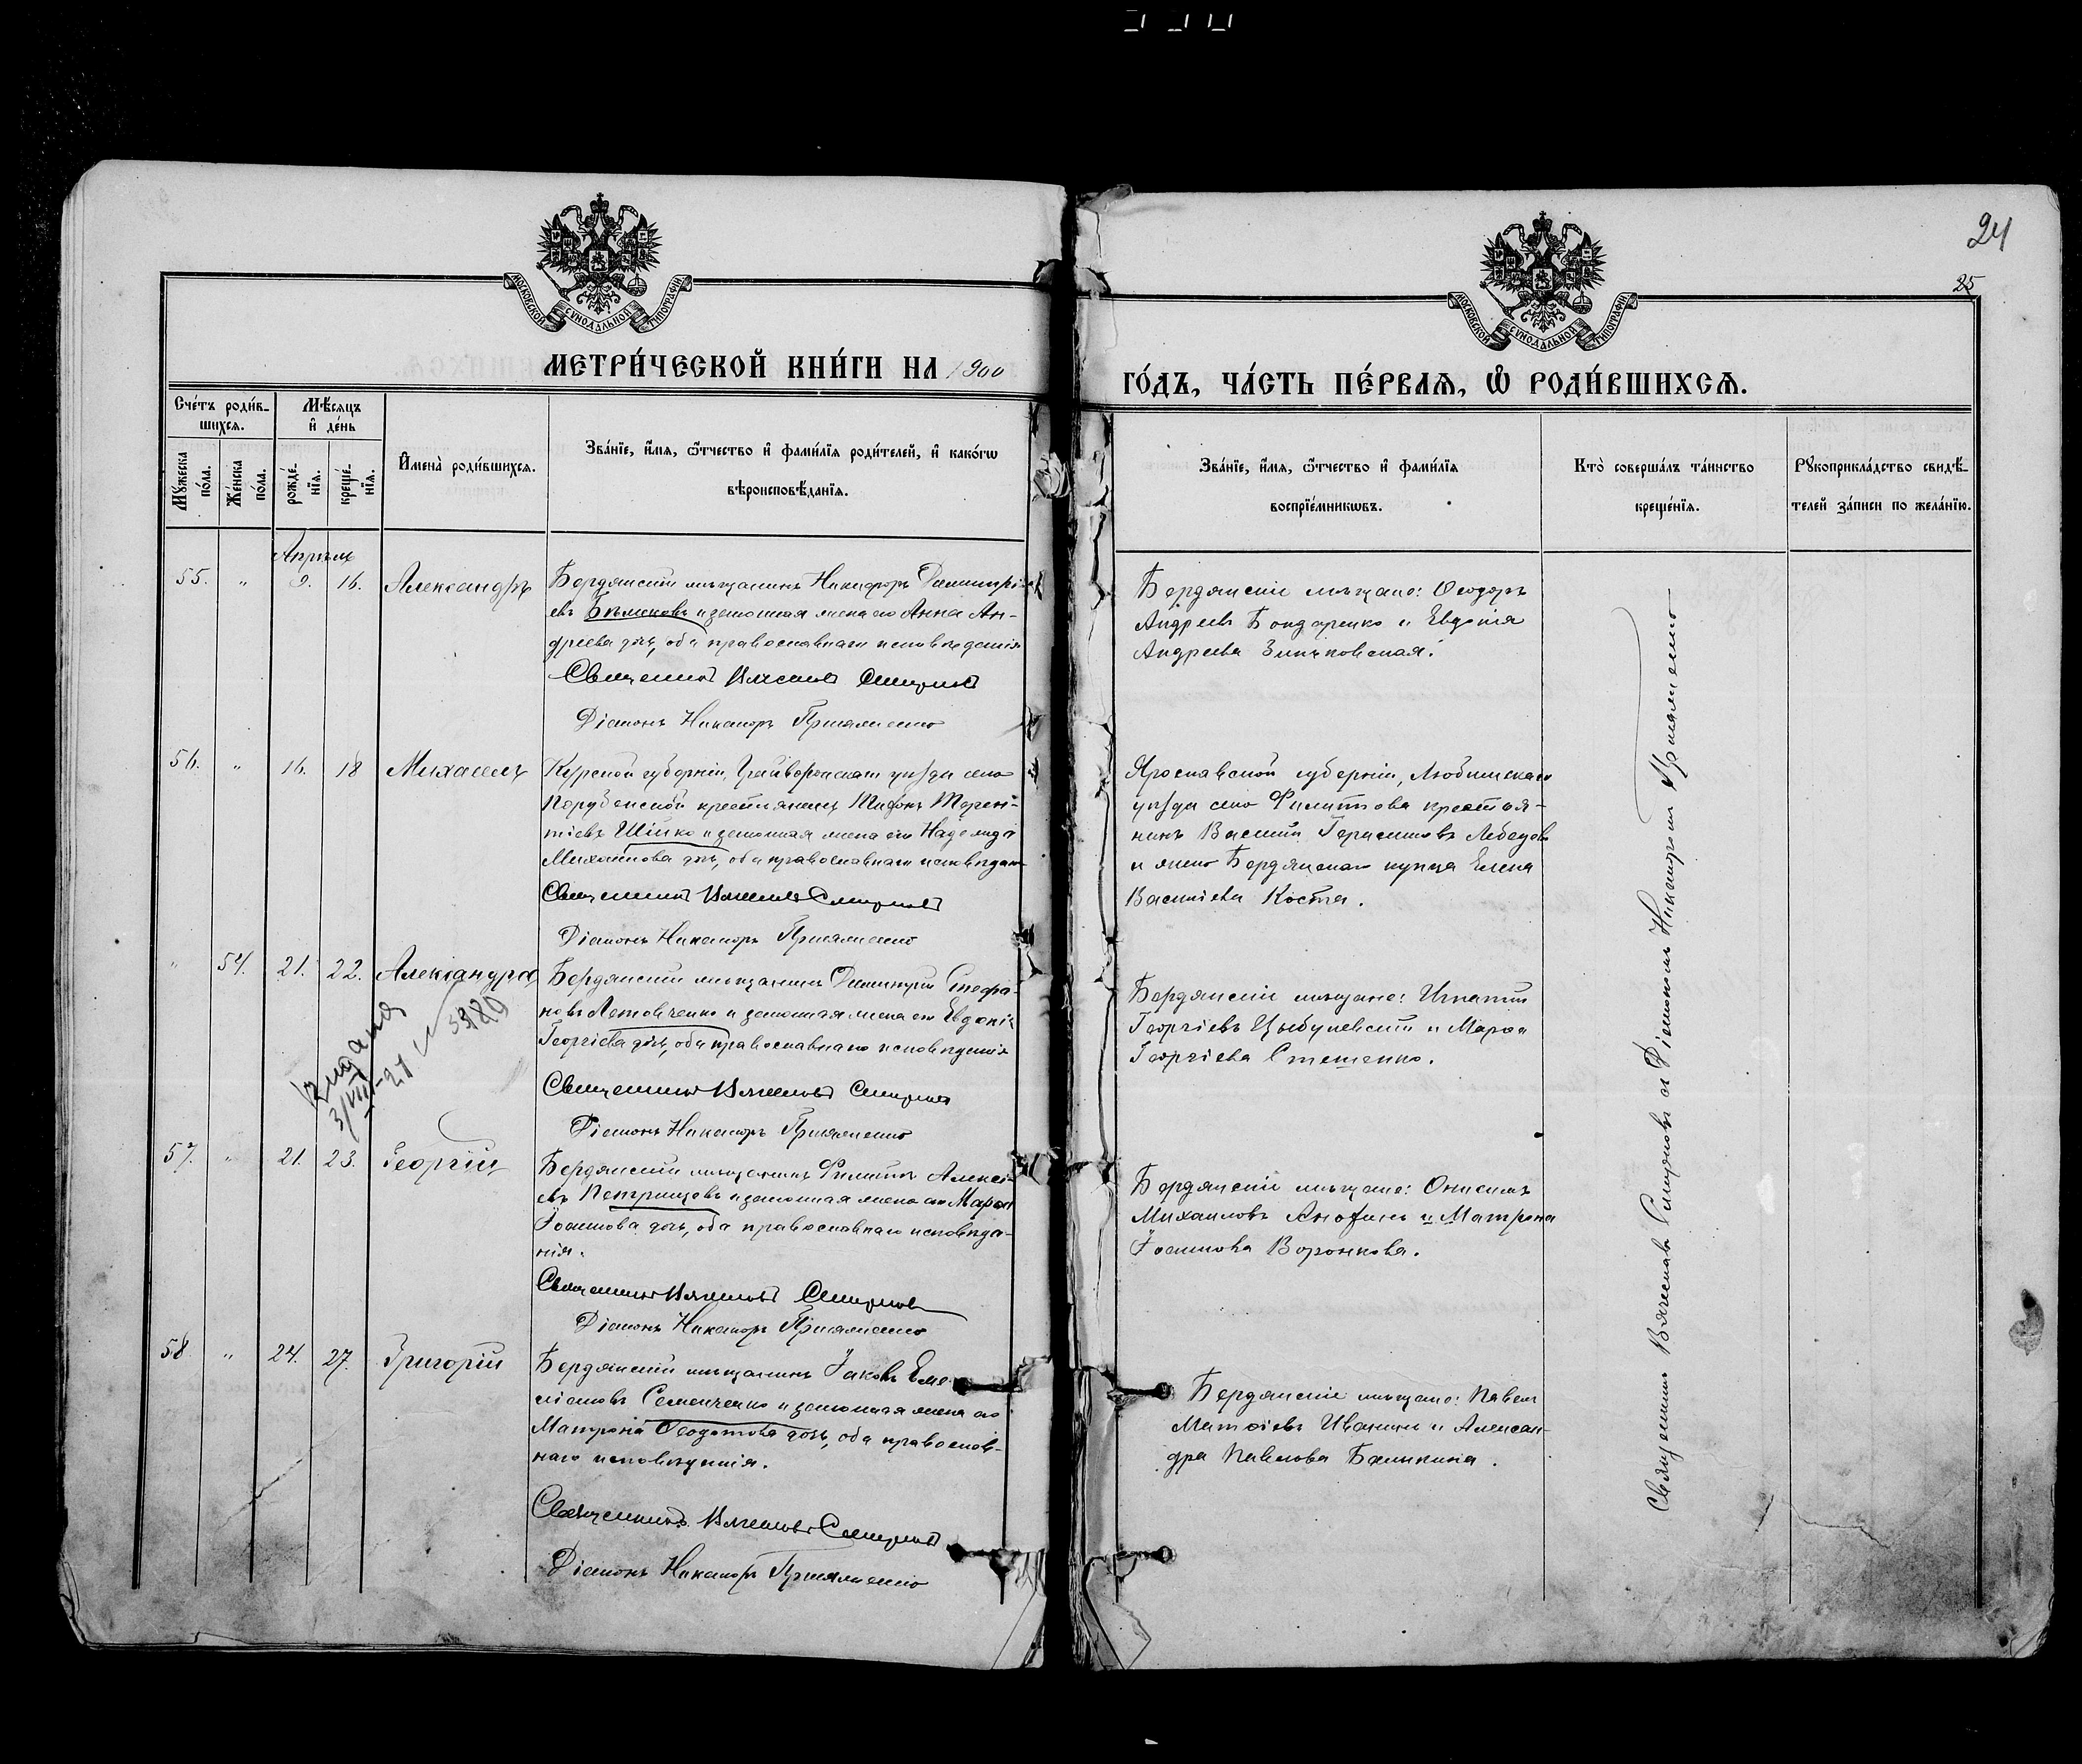 24
25
МОСКОВСКОЙ СУНОДАЛЬНОЙ ТИПОГРАФІИ.
МОСКОВСКОЙ СУНОДАЛЬНОЙ ТИПОГРАФІИ.
МЕТРИ́ЧЕСКОЙ КНИ́ГИ НА 1900
ГО́ДЪ, ЧА́СТЬ ПЕ́РВАѦ, Ѿ РОДИ́ВШИХСѦ.
Сче́тъ роди́в-
шихсѧ.
Мѣ́сѧцъ
и҆ де́нь
Мꙋ́жеска
по́ла.
Же́нска
по́ла.
рожде́-
нїѧ.
креще́-
нїѧ.
И҆мена̀ роди́вшихсѧ.
Зва́нїе, и҆́мѧ, ѻ҆́тчество и҆ фами́лїѧ роди́телей, и҆ како́гѡ
вѣроисповѣ́данїѧ.
Зва́нїе, и҆́мѧ, ѻ҆́тчество и҆ фами́лїѧ
воспрїе́мникѡвъ.
Кто̀ соверша́лъ та́инство
креще́нїѧ.
Рꙋкоприкла́дство свидѣ́-
телей за́писи по жела́нїю.
Апрѣль
55. " 9. 16. Александръ
Бердянскій мѣщанинъ Никифоръ Димитрі-
евъ Бѣликовъ и законная жена его Анна Ан-
дреева дочь, оба православнаго исповѣданія
Священникъ Вячеславъ Смирновъ
Діаконъ Никаноръ Приваленко
Бердянскіе мѣщане: Ѳеодоръ
Андреевъ Бондаренко и Евдокія
Андреева Зиньковская.
56. " 16. 18 Михаилъ
Курской губерніи, Грайворонскаго уѣзда села
крестьянинъ Терен-
тіевъ Шійко и законная жена его Надежда
Михайлова дочь, оба православнаго исповѣдан
Священникъ Вячеславъ Смирновъ
Діаконъ Никаноръ Приваленко
Ярославской губерніи, Любимскаго
уѣзда села Филиппова крестья-
нинъ Василій Герасимовъ Лебедевъ
и жена Бердянскаго купца Елена
Васильева Коста.
" 54. 21. 22. Александра
Бердянскій мѣщанинъ Димитрій Стефа-
новъ Летовченко и законная жена его Евдокія
Георгіева дочь, оба православнаго исповѣданія
Священникъ Вячеславъ Смирновъ
Діаконъ Никаноръ Приваленко
Бердянскіе мѣщане: Игнатій
Георгіевъ Цыбулевскій и Марѳа
Георгіева Стешенко.
видана
3/VIII-21
57. " 21. 23. Георгій
Бердянскій мѣщанинъ Филиппъ Алексі-
евъ Петрищевъ и законная жена его Марѳа
Іоаннова дочь, оба православнаго исповѣда-
нія.
Священникъ Вячеславъ Смирновъ
Діаконъ Никаноръ Приваленко
Бердянскіе мѣщане: Онисимъ
Михаиловъ и Матрона
Іоаннова Воронкова.
58 " 24. 27. Григорій
Бердянскій мѣщанинъ Іаковъ Еме-
ліановъ Семенченко и законная жена его
Матрона Ѳеодотова дочь, оба православ-
наго исповѣданія.
Священникъ Вячеславъ Смирновъ
Діаконъ Никаноръ Приваленко
Бердянскіе мѣщане: Павелъ
Матѳіевъ Иванинъ и Алексан-
дра Павлова Балыкина.
Священникъ Вячеславъ Смирновъ съ Діакономъ Никаноромъ Приваленко